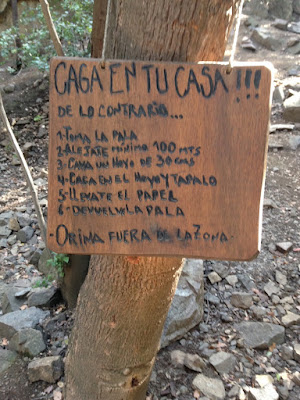 CAGA EN TU CASA!!!
DE LO CONTRARIO...
1-TOMA LA PALA
2-ALEJATE MÍNIMO 100 MTS
3-CAVA UN HOYO DE 30 CMS
4-CAGA EN EL HOYO Y TAPALO
5-LLEVATE EL PAPEL
6-DEVUELVE LA PALA
-ORINA FUERA DE LA ZONA-